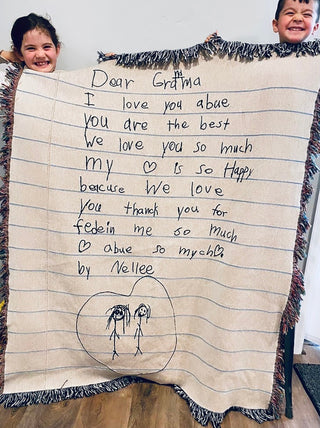 Dear Gramma
I love you abue
you are the best
We love you so much
my ♡ is so Happy
because We love
you thank you for
fedein me so much
♡ abue so mych♡
by Nellee